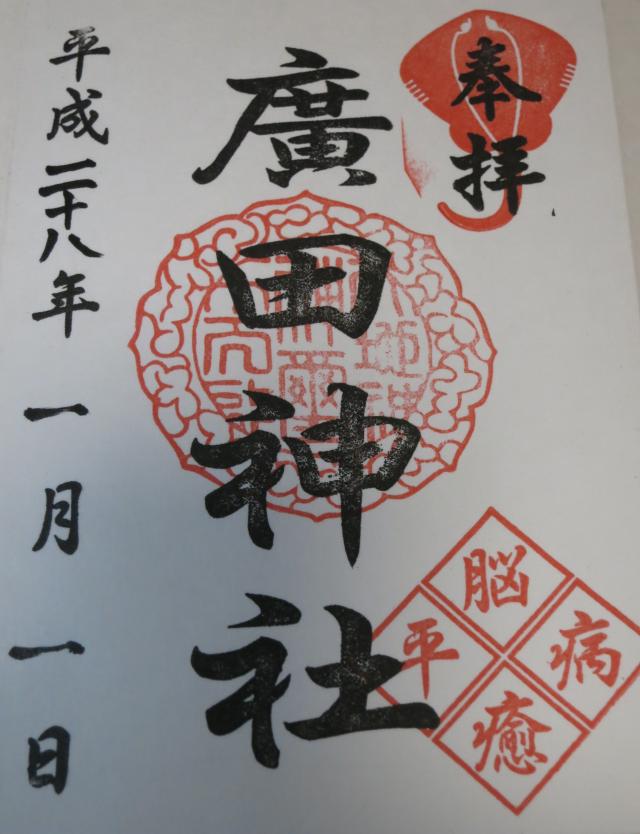 奉拝
廣田神社
脳病平癒
平成二十八年一月一日